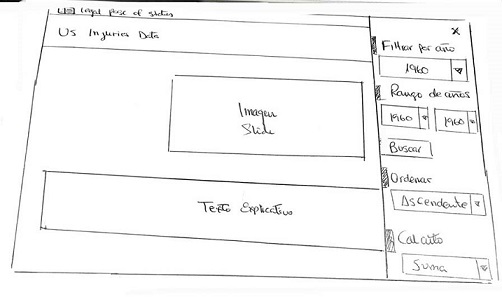 US Injuries Data
Imagen
Slide
Texto Explicativo
x
Filtrar por año
1960
Rango de años
1960 1960
Buscar
Ordenar
Ascendente
Calculo
Suma